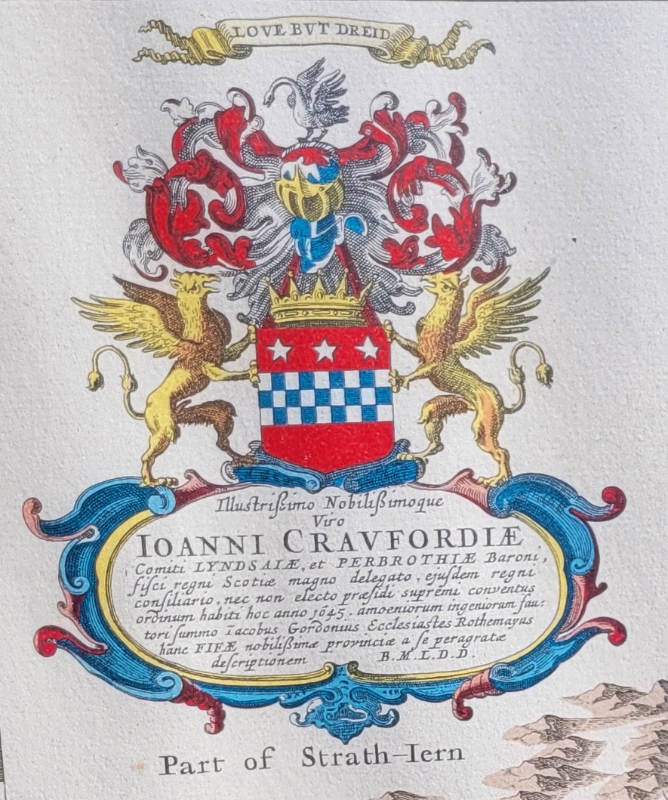 LOVE BVT DREID
Illustrißimo Nobilißimoque
Viro
IOANNI CRAVFORDIÆ
Comiti LYNDSAIÆ, et PERBROTHIÆ Baroni,
fisci regni Scotiæ magno delegato, ejusdem regni
consiliario, nec non electo præsidi supremi conventus
ordinum habiti hoc anno 1645. amoeniorum ingeniorum fau:
tori summo Iacobus Gordonius Ecclesiastes Rothemayus
hanc FIFÆ nobilißimæ provinciæ a se peragratæ
descriptionem B.M.L.D.D.
Part of Strath-Iern